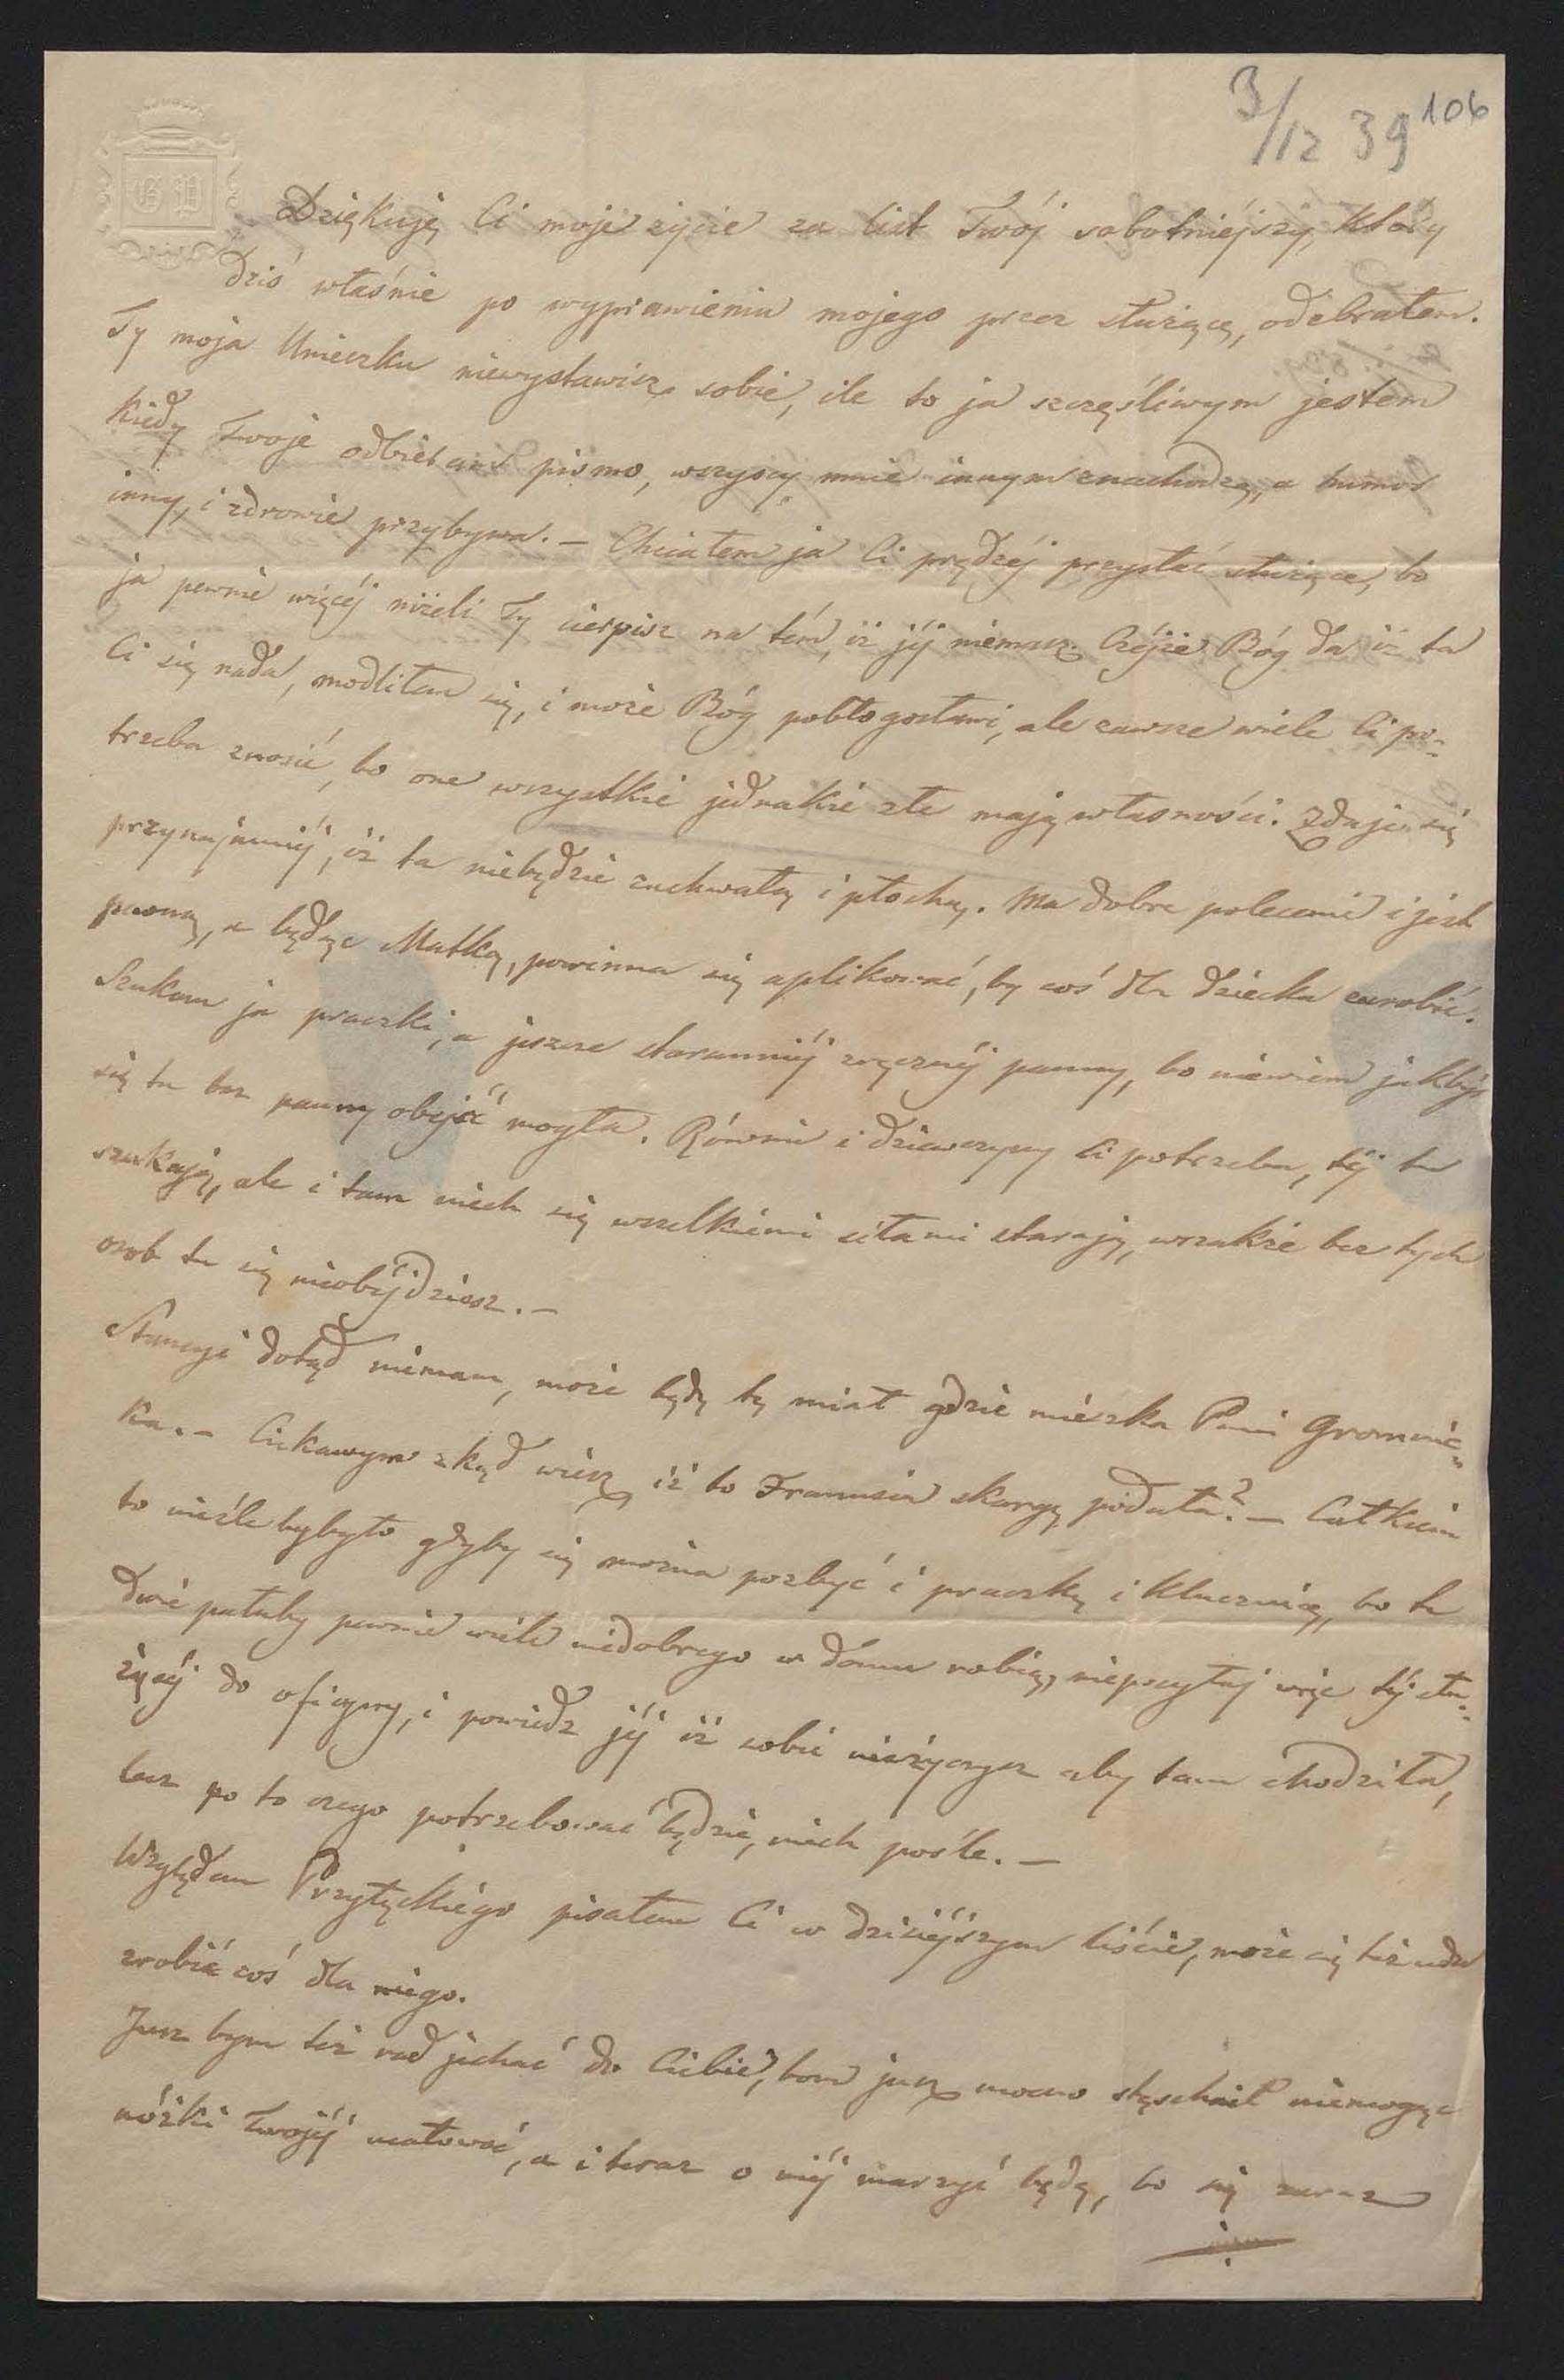 3/12 39 106
G P
Dziękuję Ci moje życie za list Twój sobotniéjszy, który
dziś właśnie po wyprawieniu mojego przez służącę, odebrałem.
Ty moja Unieczku niewystawisz sobie, ile to ja szczęśliwym jestem
kiedy Twoje odbieram pismo, wszyscy mnie innym znachodzą, a humor
inny, i zdrowie przybywa. — Chciałem ja Ci prędzéj przysłać służące, bo
ja pewnie więcéj niżeli Ty cierpisz na tém, iż jéj niemasz. Czéjże Bóg da iż ta
Ci się nada, modliłem się, i może Bóg pobłogosławi, ale zawsze wiele Ci po=
trzeba znosić, bo one wszystkie jednakie złe mają własności. Zdaje się
przynajmniéj, iż ta niebędzie zuchwałą i płochą. Ma dobre polecenie i jest
pewną, a będąc Matką, powinna się aplikować, by coś dla dziecka zarobić.
Szukam ja praczki, a jeszcze staranniéj zręcznéj panny, bo niewiem jakbyś
się tu bez panny obejść mogła. Równie i dziewczyny Ci potrzeba, téj tu
szukają, ale i tam niech się wszelkiemi siłami starają, wszakże bez tych
osob tu się nieobéjdziesz. —
Stancyi dotąd niemam, może będę tę miał gdzie miészka Pani Gromnic=
ka. — Ciekawym zkąd wiész iż to Franusia skargę podała? — Całkiem
to nieźle bybyło gdyby się można pozbyć i praczkę i klucznicę, bo te
dwie pałuby pewnie wiele niedobrego w domu robią, nieposyłaj więc téj słu=
żącéj do oficyny, i powiedz jéj iż sobie nieżyczysz aby tam chodziła,
lecz po to czego potrzebować będzie, niech pośle. —
Względem Przyłęckiego pisałem Ci w dzisiéjszym liście, może się też uda
zrobić coś dla niego.
Jusz bym też rad jechać do Ciebie, bom jusz mocno stęschnił niemogąc
nóżki Twojéj ucałować, a i teraz o niéj marzyć będę, bo się zaraz